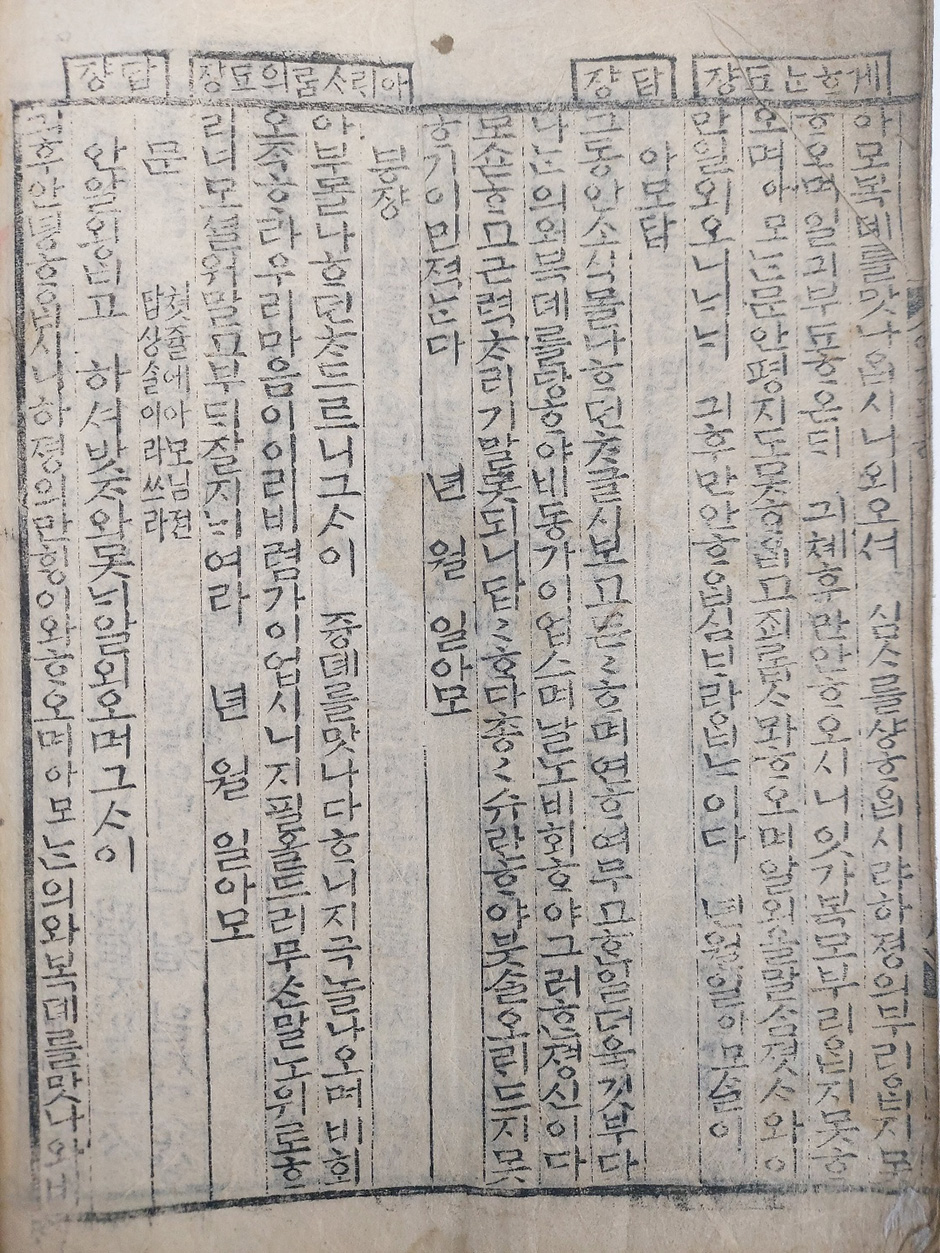 게ᄒᆞ눈됴쟝
아모복뎨를맛나옵시니오셔 심ᄉᆞ를샹ᄒᆞ옵시랴하졍의부리옵지못
ᄒᆞ오며일긔부됴ᄒᆞ온ᄃᆡ 긔쳬후만안ᄒᆞ오시니잇가복모부리ᄋᆞᆸ지못ᄒᆞ
오며아모ᄂᆞᆫ문안평지도못ᄒᆞᄋᆞᆸ고 ᄒᆞ오며알외올말ᄉᆞᆷ졋ᄉᆞ와이
만알외오니ᄂᆡᄂᆡ 긔후만안ᄒᆞᄋᆞᆸ심ᄇᆞ라ᄋᆞᆸᄂᆞ이다 년월일아모ᄉᆞᆯ이
답쟝
아모답
그동안소식몰나ᄒᆞ던ᄎᆞ글시보고든〻ᄒᆞ며연ᄒᆞ여무고ᄒᆞᆫ일더욱깃부다
나ᄂᆞᆫ의외복뎨를당ᄒᆞ야ᄋᆡ통가이업스며날노비회ᄒᆞ야그러ᄒᆞᆫ졍신이다
모손ᄒᆞ고근력ᄎᆞ리기말못되니답〻ᄒᆞ다총〻슈란ᄒᆞ야붓ᄉᆞᆯ오ᄅᆡ드지못
ᄒᆞ기이만젹ᄂᆞᆫ다 년 월 일아모
아리ᄉᆞ룸의됴장
봉쟝
아모몰나ᄒᆞ던ᄎᆞ드르니그ᄉᆞ이 즁뎨를맛나다ᄒᆞ니지극놀나오며비회
오죽ᄒᆞ랴우리마음이이리비렴가이업시니지필을드러무ᄉᆞᆷ말노위로ᄒᆞ
리너모셜워말고부ᄃᆡ잘지ᄂᆡ여라 년 월 일아모
답쟝
문 첫줄에아모님젼
답상ᄉᆞᆯ이라쓰라
알외ᄋᆞᆸ고 하셔밧ᄌᆞ와못ᄂᆡ알외오며그ᄉᆞ이
긔후안령ᄒᆞ옵시니하졍의만ᄒᆡᆼ이와ᄒᆞ오며아모ᄂᆞᆫ의외복뎨를맛나와비